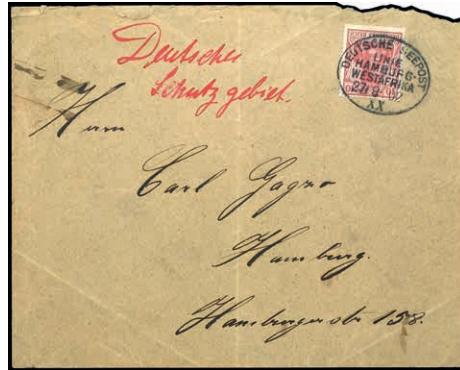 Deutsches
Schutzgebiet.
DEUTSCHE SEEPOST
LINIE
HAMBURG-
WESTAFRIKA
27/9 02
XX
Herrn
Carl
Hamburg.
Hamburgerstr 158.